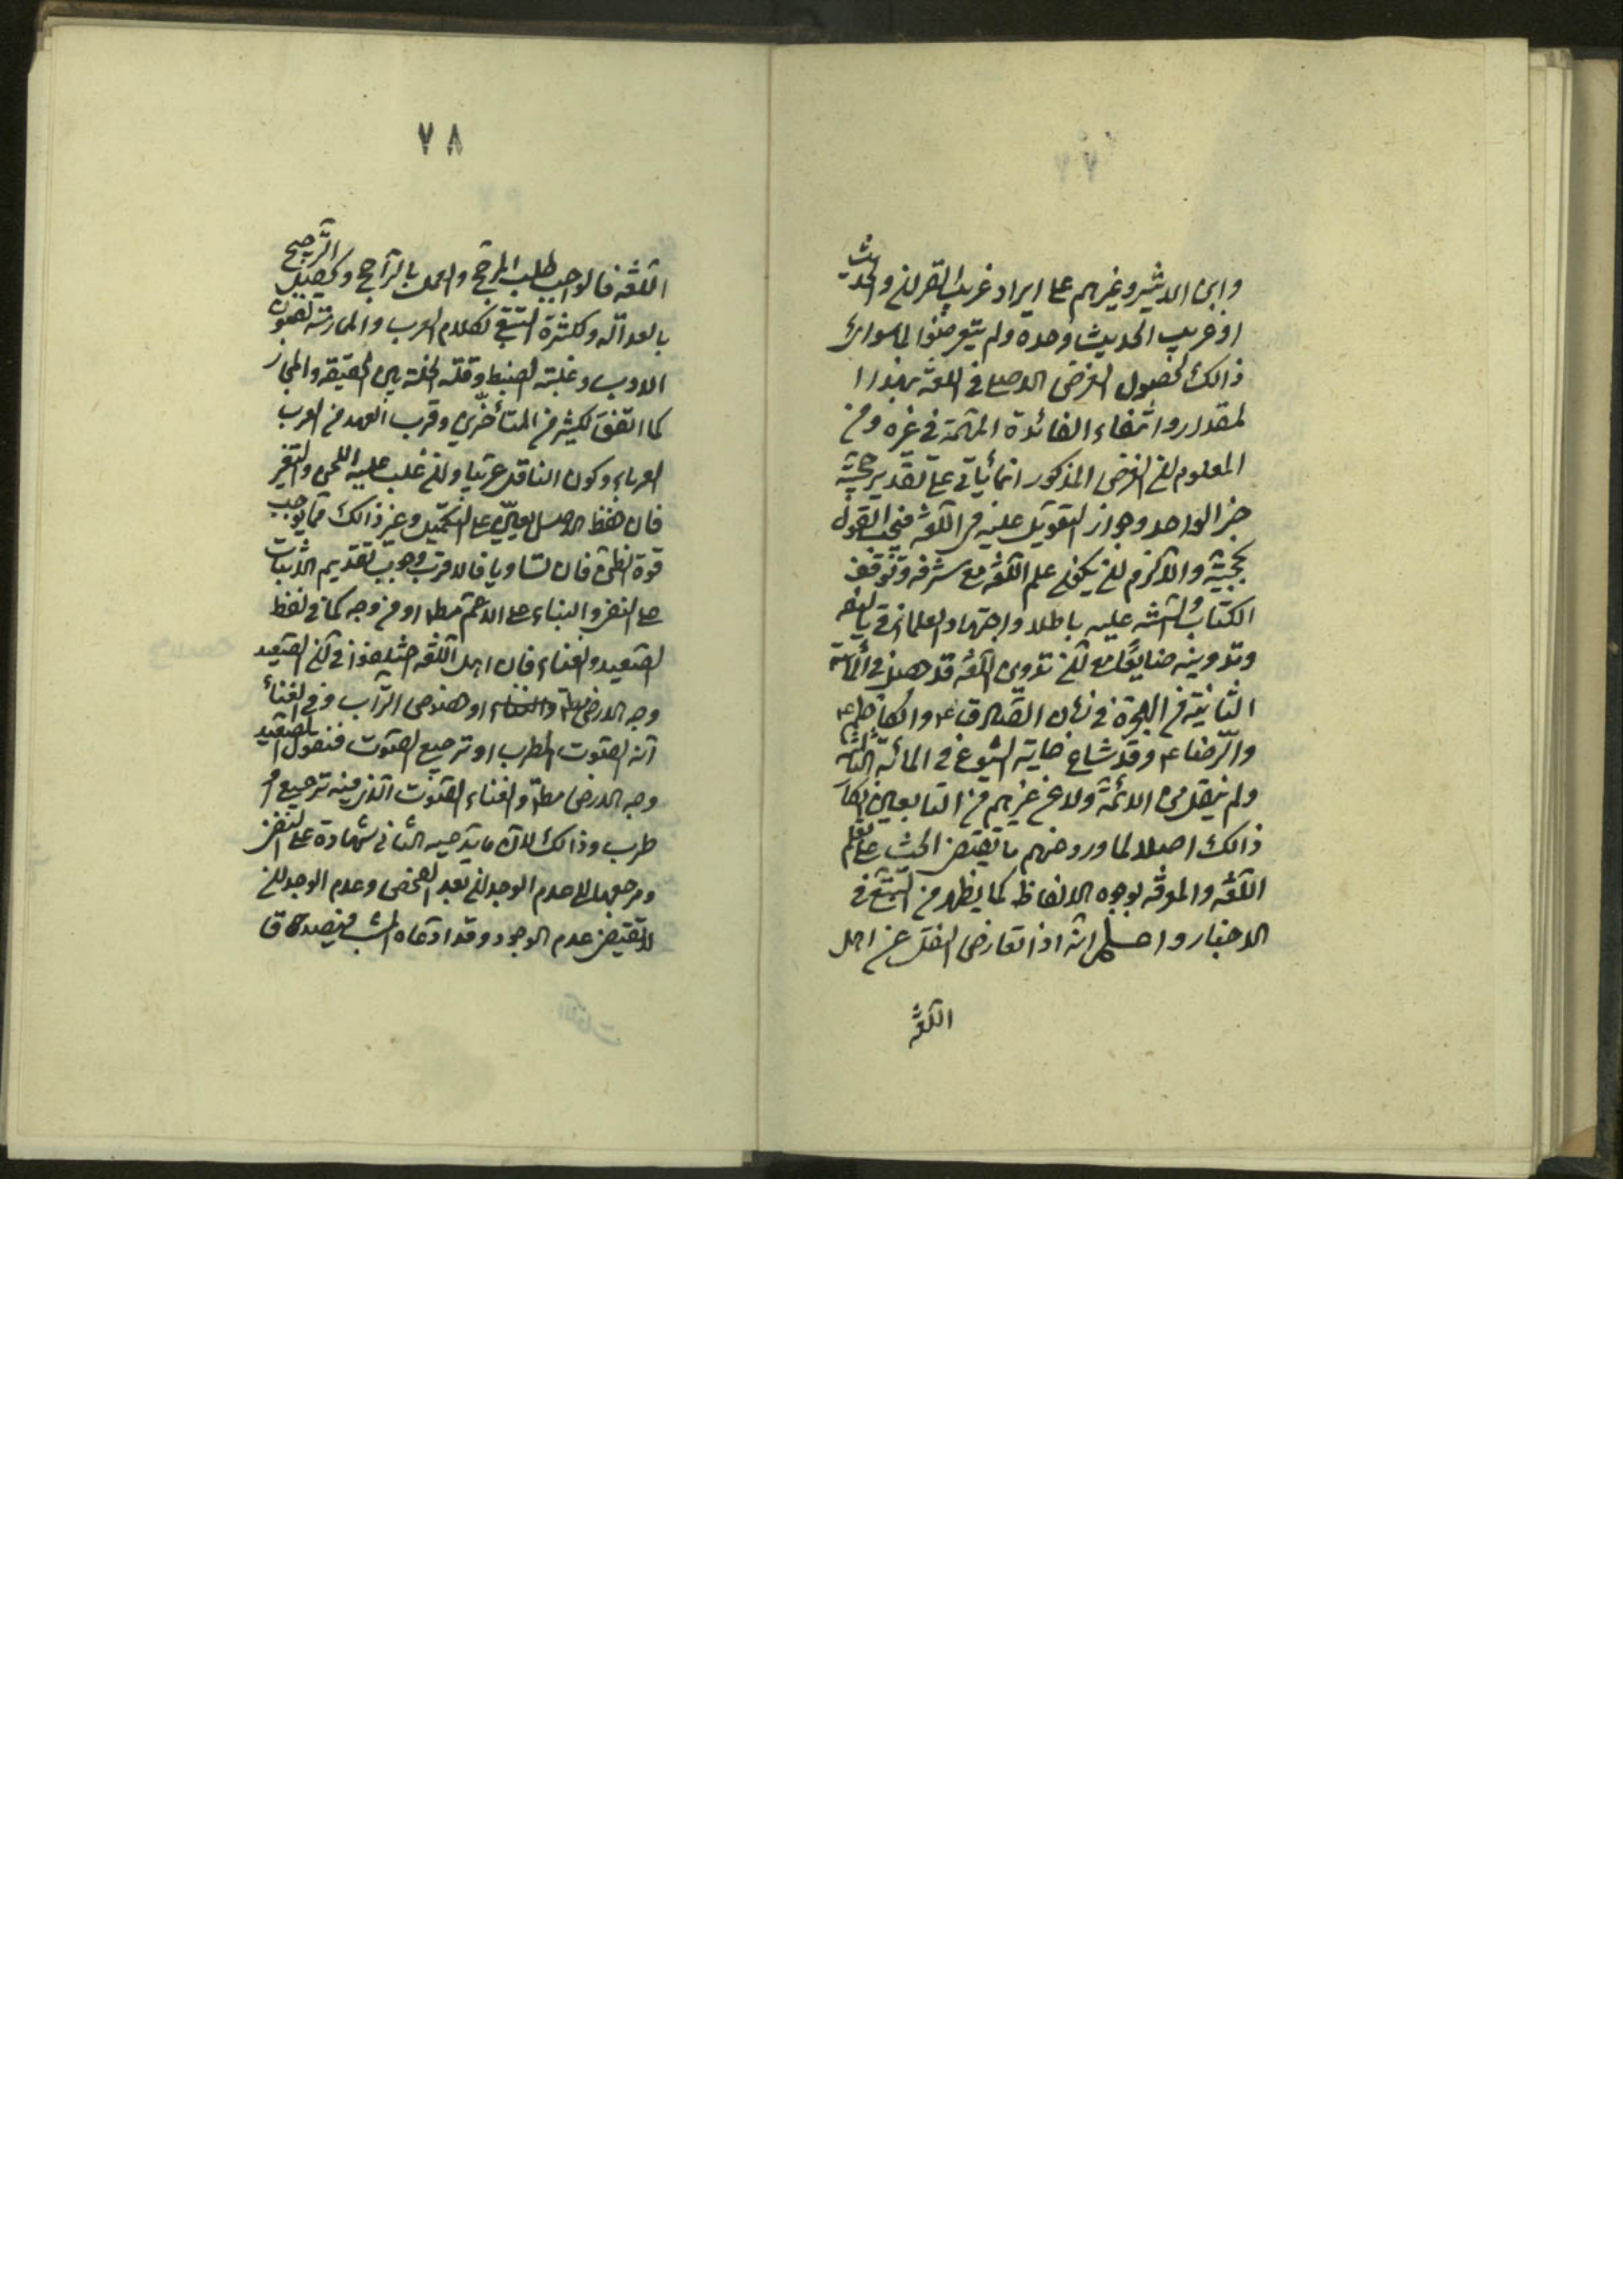 ٧٧
وابن الاثير وغيرهم على ايراد غريب القران والحديث
او غريب الحديث وحده ولم يتعرضوا لما سوى
ذالك لحصول الغرض الاصلى فى اللغة بهذا
لمقدار وانتفاء الفائدة المهمة فى غيره ومن
المعلوم ان الغرض المذكور انما يأتى على تقدير حجية
خبر الواحد وجواز التعويل عليه فى اللغة فيجب القول
بحجيته والا لزم ان يكون علم اللغة مع شرفه وتوقف
الكتاب والسنة عليه باطلا واجتهاد العلماء فى تأليفه
وتدوينه ضايعا مع ان تدوين اللغة قد حصل فى المائة
الثانية من الهجرة فى زمان الصادق ع والكاظم ع
والرضا ع وقد شاع غاية الشيوع فى المائة الثالثة
ولم ينقل من الائمة ولا عن غيرهم من التابعين انكار
ذالك اصلا لما ورد منهم ما يقتضى الحث على تعلم
اللغة والمعرفة بوجوه الالفاظ كما يظهر من التتبع فى
الاخبار واعلم انه اذا تعارض النقل عن اهل
اللغة
٧٨
اللغة فالواجب طلب المرجح والعمل بالراجح ويحصل الترجيح
بالعدالة وكثرة التتبع لكلام العرب والممارسة لفنون
الادب وغلبة الضبط وقلة الخلط بين الحقيقة والمجاز
كما اتفق لكثير من المتأخرين وقرب العهد من العرب
العرباء وكون الناقل عربيا وان غلب عليه اللحن والتغير
فان حفظ الاصل يعين على التكميل وغير ذالك مما يوجب
قوة الظن فان تساويا فالاقرب وجوب تقديم الاثبات
على النفى والبناء على الاعم مطلقا او من وجه كما فى لفظ
الصعيد والغناء فان اهل اللغة اختلفوا فى ان الصعيد
وجه الارض مطلقا او خصوص التراب وفى الغناء
انه الصوت المطرب او ترجيع الصوت فنقول الصعيد
وجه الارض مطلقا والغناء الصوت الذى فيه ترجيع او
طرب وذالك لان ما يدعيه الثانى شهادة على النفى
ومرجعها الى عدم الوجدان بعد الفحص وعدم الوجدان
لا يقتضى عدم الوجود وقد ادعاه المثبت فيصدق